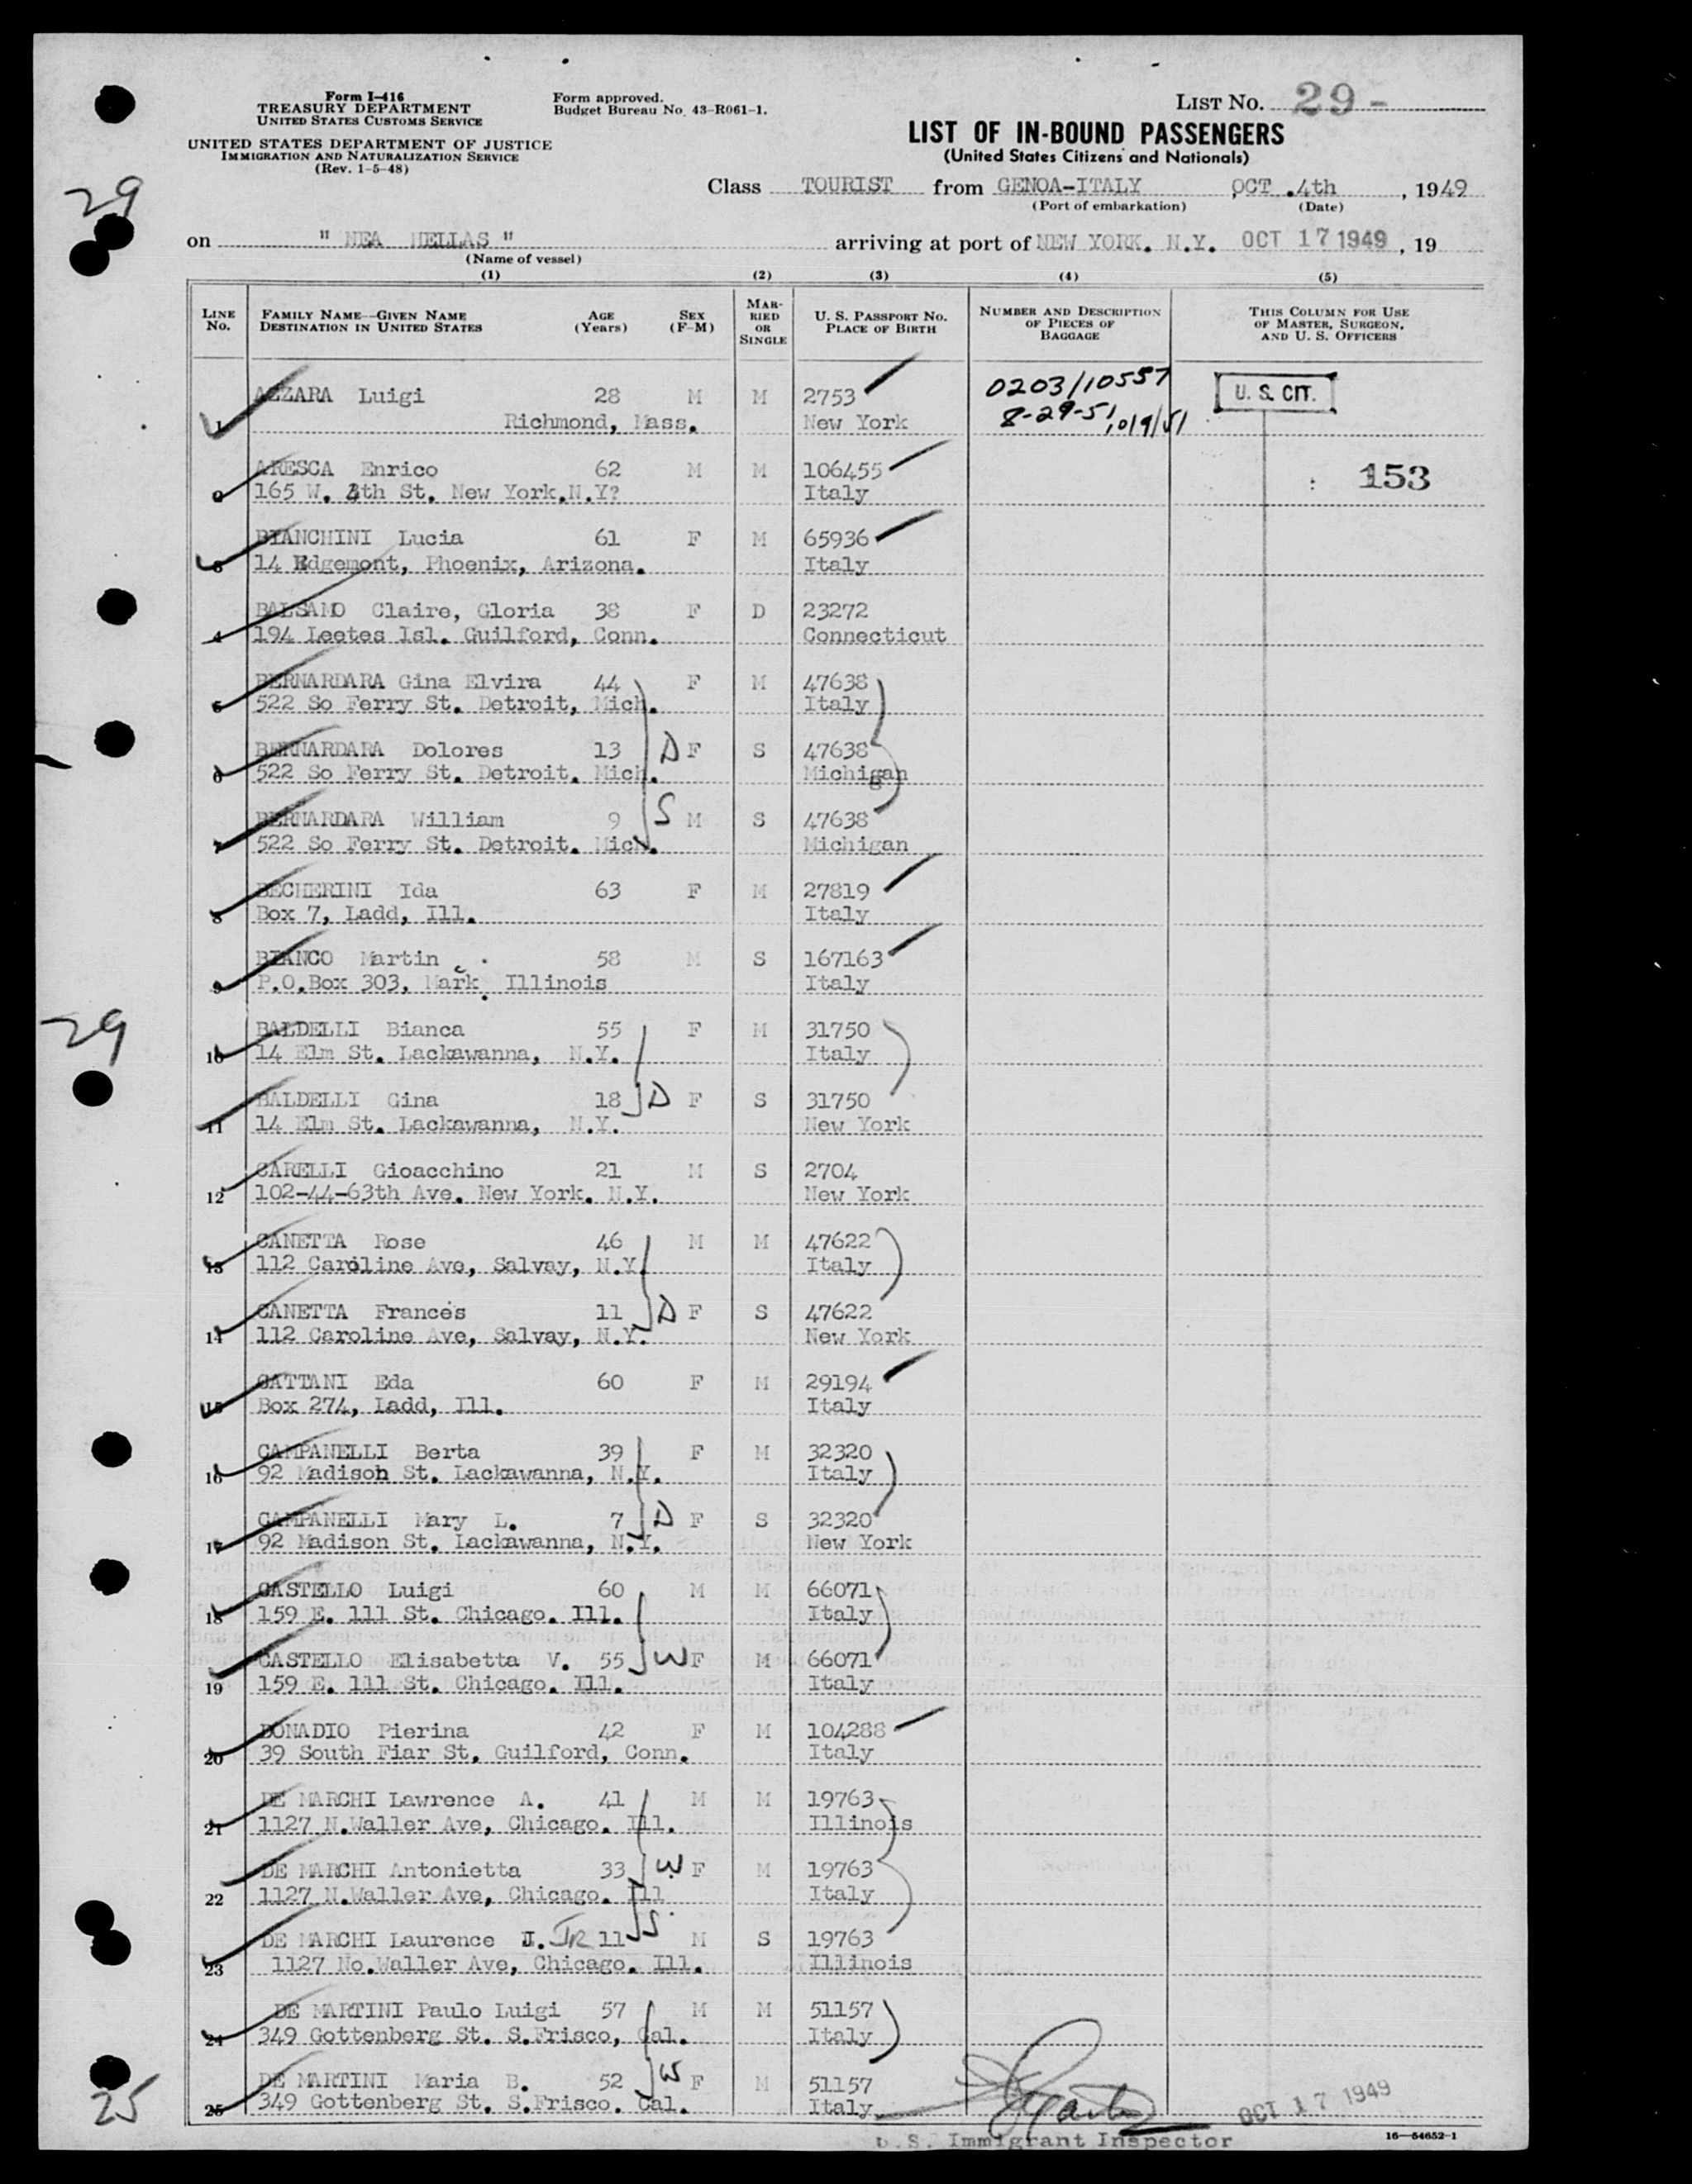 Form I-416
TREASURY DEPARTMENT
UNITED STATES CUSTOMS SERVICE
UNITED STATES DEPARTMENT OF JUSTICE
IMMIGRATION AND NATURALIZATION SERVICE
(Rev. 1-5-48)
Form approved.
Budget Bureau No. 43-R061-1.
LIST NO. 29-
LIST OF IN-BOUND PASSENGERS
(United States Citizens and Nationals)
29
Class TOURIST from GENOA-ITALY OCT .4th , 1949
(Port of embarkation) (Date)
on " NEA HELLAS " arriving at port of NEW YORK. N.Y. OCT 17 1949 , 19
(Name of vessel)
(1) (2) (3) (4) (5)
LINE NO. FAMILY NAME—GIVEN NAME DESTINATION IN UNITED STATES AGE (Years) SEX (F-M) MARRIED OR SINGLE U. S. PASSPORT NO. PLACE OF BIRTH NUMBER AND DESCRIPTION OF PIECES OF BAGGAGE THIS COLUMN FOR USE OF MASTER, SURGEON, AND U. S. OFFICERS
AZZARA Luigi 28 M M 2753 0203/10557 U. S. CIT.
1 Richmond, Mass. New York 8-29-51 10/9/51
ARESCA Enrico 62 M M 106455 153
2 165 W. 4th St. New York.N.Y? Italy
BIANCHINI Lucia 61 F M 65936
3 14 Edgemont, Phoenix, Arizona. Italy
BALSAMO Claire, Gloria 38 F D 23272
4 194 Leetes Isl. Guilford, Conn. Connecticut
BERNARDARA Gina Elvira 44 F M 47638
5 522 So Ferry St. Detroit, Mich. Italy
BERNARDARA Dolores 13 D F S 47638
6 522 So Ferry St. Detroit. Mich. Michigan
BERNARDARA William 9 S M S 47638
7 522 So Ferry St. Detroit. Mich. Michigan
BECHERINI Ida 63 F M 27819
8 Box 7, Ladd, Ill. Italy
BIANCO Martin 58 M S 167163
9 P.O.Box 303, Mark Illinois Italy
29
BALDELLI Bianca 55 F M 31750
10 14 Elm St. Lackawanna, N.Y. Italy
BALDELLI Gina 18 D F S 31750
11 14 Elm St. Lackawanna, N.Y. New York
CARELLI Gioacchino 21 M S 2704
12 102-44-63th Ave. New York. N.Y. New York
CANETTA Rose 46 M M 47622
13 112 Caroline Ave, Salvay, N.Y. Italy
CANETTA Frances 11 D F S 47622
14 112 Caroline Ave, Salvay, N.Y. New York
CATTANI Eda 60 F M 29194
15 Box 274, Ladd, Ill. Italy
CAMPANELLI Berta 39 F M 32320
16 92 Madison St. Lackawanna, N.Y. Italy
CAMPANELLI Mary L. 7 D F S 32320
17 92 Madison St. Lackawanna, N.Y. New York
CASTELLO Luigi 60 M M 66071
18 159 E. 111 St. Chicago. Ill. Italy
CASTELLO Elisabetta V. 55 W F M 66071
19 159 E. 111 St. Chicago. Ill. Italy
DONADIO Pierina 42 F M 104288
20 39 South Fiar St, Guilford, Conn. Italy
DE MARCHI Lawrence A. 41 M M 19763
21 1127 N.Waller Ave, Chicago. Ill. Illinois
DE MARCHI Antonietta 33 W F M 19763
22 1127 N.Waller Ave, Chicago. Ill Italy
DE MARCHI Laurence J. JR 11 S M S 19763
23 1127 No.Waller Ave, Chicago. Ill. Illinois
DE MARTINI Paulo Luigi 57 M M 51157
24 349 Gottenberg St. S.Frisco, Cal. Italy
DE MARTINI Maria B. 52 W F M 51157
25 349 Gottenberg St. S.Frisco. Cal. Italy
25
OCT 17 1949
U.S. Immigrant Inspector
16—54652-1